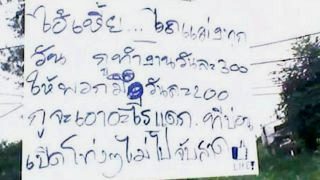 ไอ้เหี้ย... ไถแม่งทุก
วัน กูทำงานวันละ 300
ให้พวกมึงวันละ 200
กูจะเอาอะไรแดก. ที่บ่อน
เปิดโต่งๆไม่ไปจับ